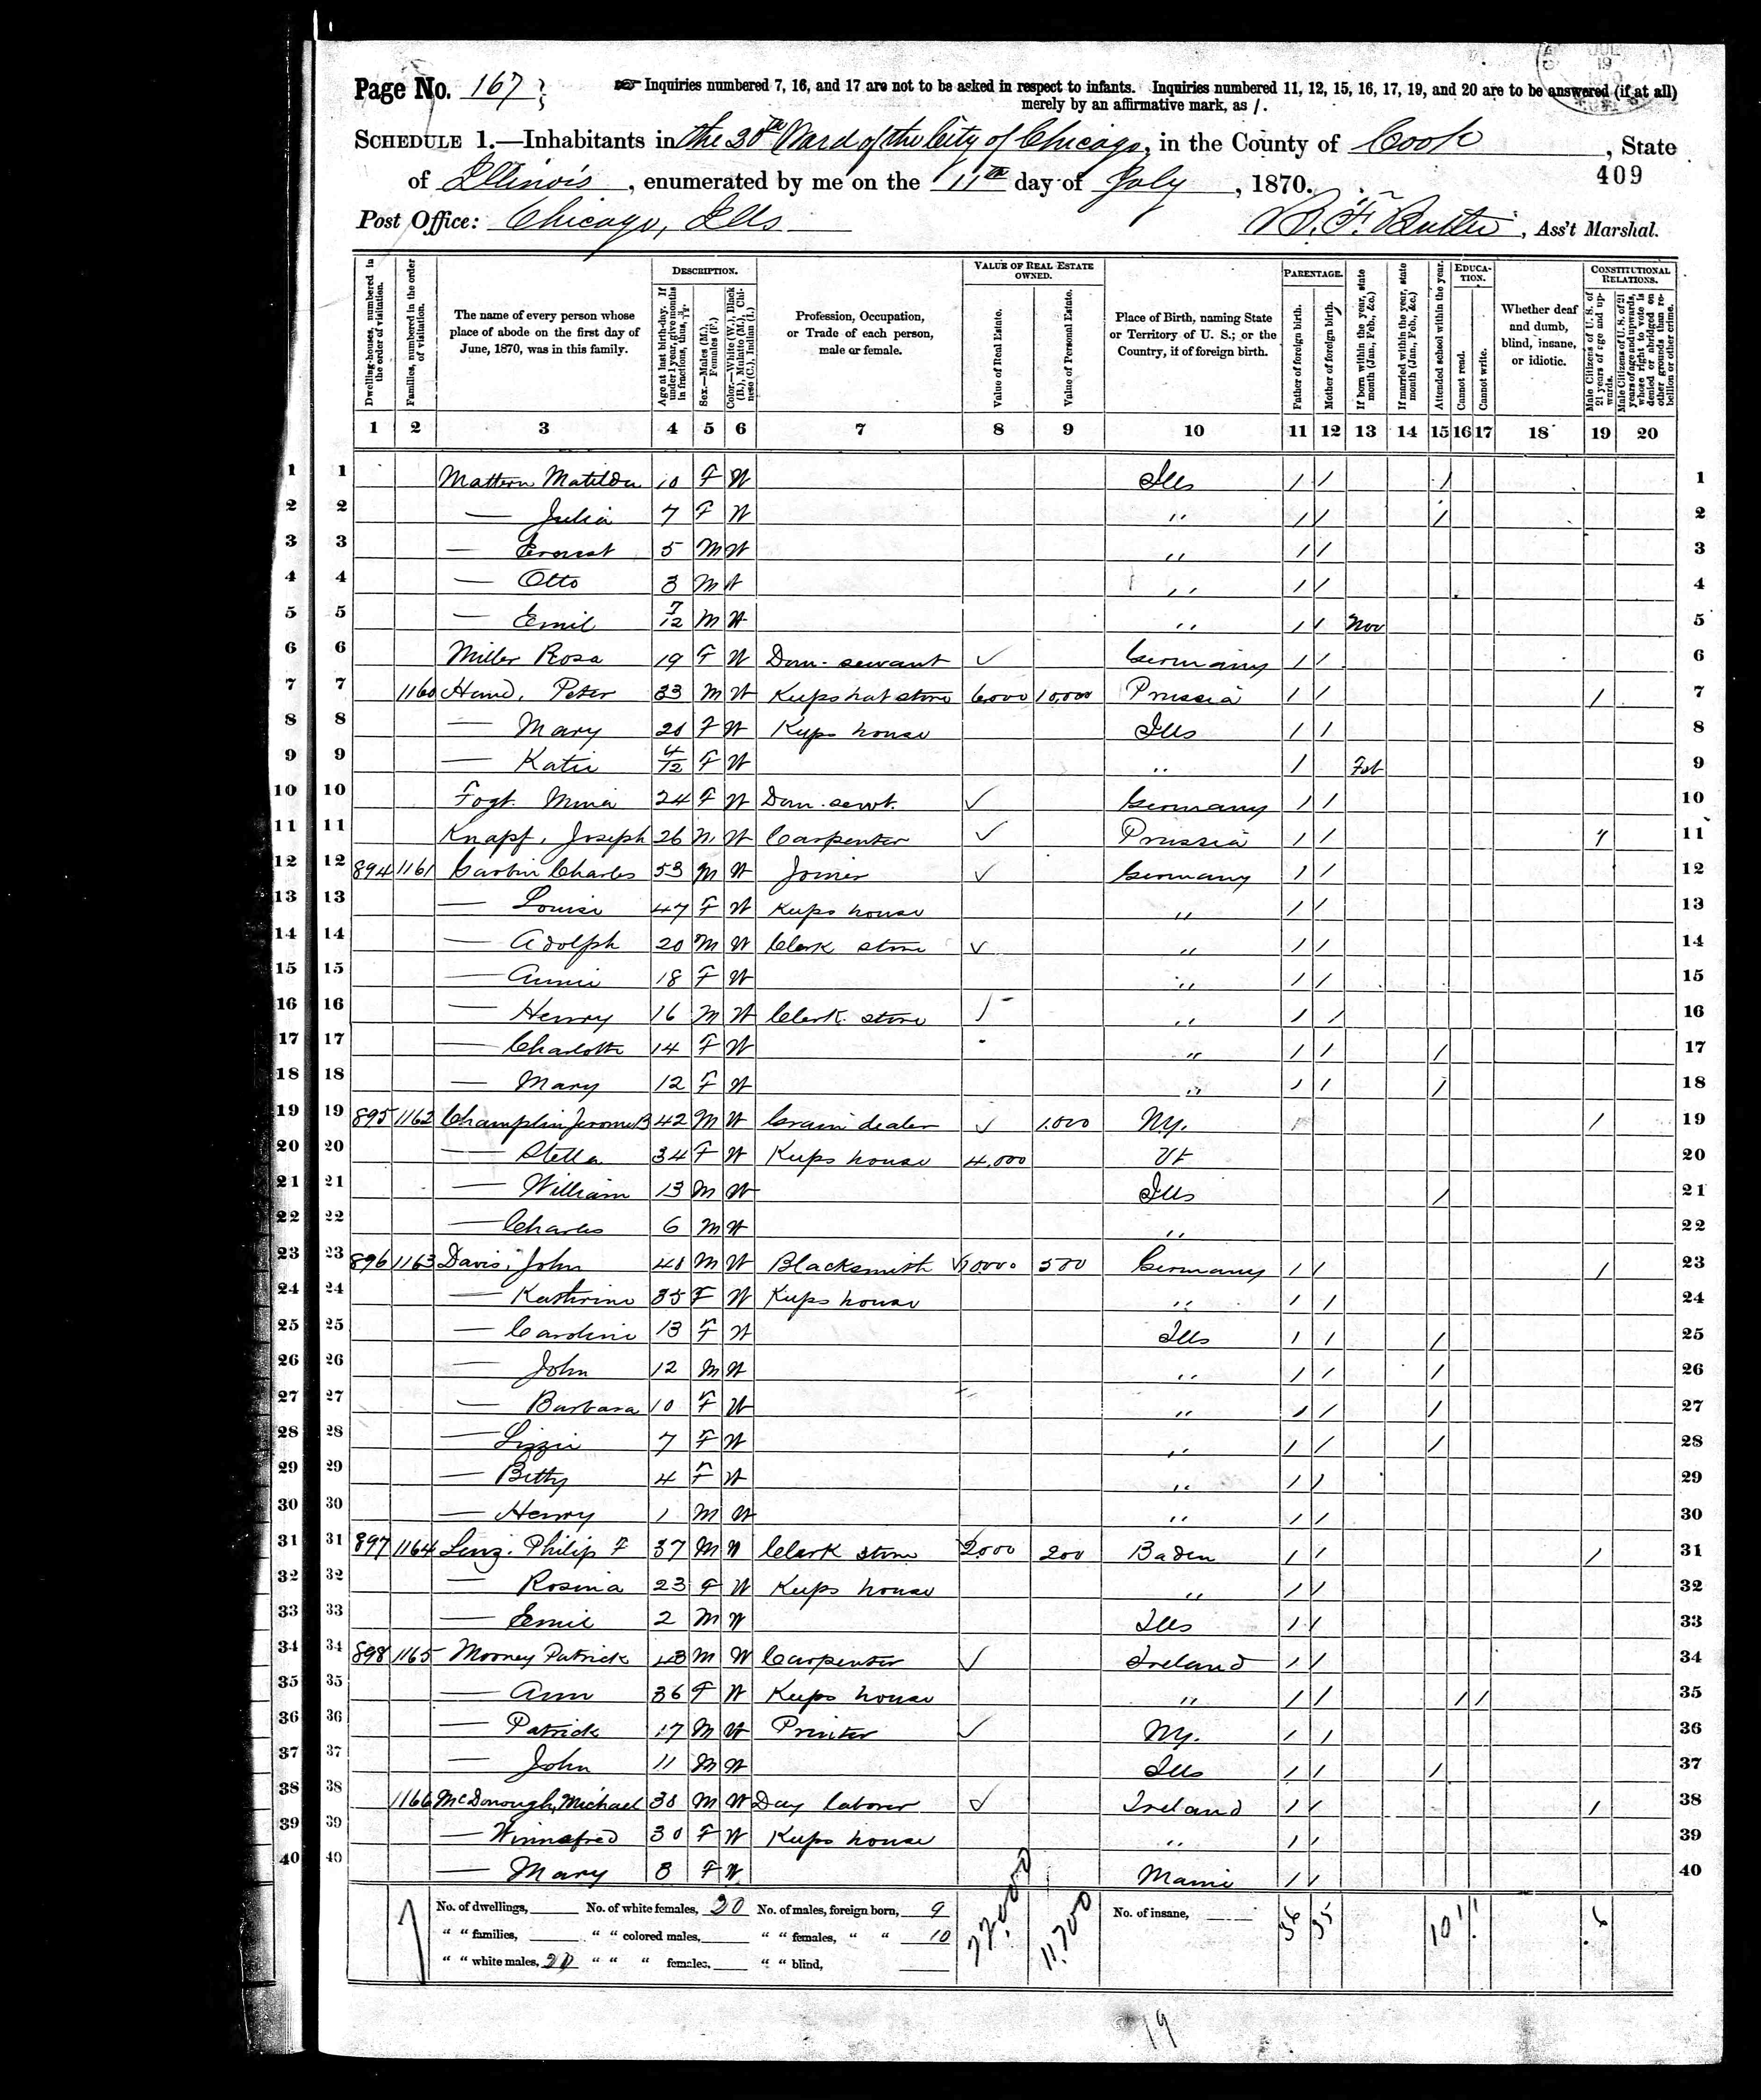 Page No. 167
☞ Inquiries numbered 7, 16, and 17 are not to be asked in respect to infants. Inquiries numbered 11, 12, 15, 16, 17, 19, and 20 are to be answered (if at all)
merely by an affirmative mark, as /.
SCHEDULE 1.—Inhabitants in the 20th Ward of the City of Chicago, in the County of Cook, State
of Illinois, enumerated by me on the 11th day of July, 1870.
409
Post Office: Chicago, Ills
Ass't Marshal.
Dwelling-houses, numbered in the order of visitation.
Families, numbered in the order of visitation.
The name of every person whose place of abode on the first day of June, 1870, was in this family.
DESCRIPTION.
Age at last birth-day. If under 1 year, give months in fractions, thus, 3/12.
Sex.—Males (M.), Females (F.)
Color.—White (W.), Black (B.), Mulatto (M.), Chinese (C.), Indian (I.)
Profession, Occupation, or Trade of each person, male or female.
VALUE OF REAL ESTATE OWNED.
Value of Real Estate.
Value of Personal Estate.
Place of Birth, naming State or Territory of U. S.; or the Country, if of foreign birth.
PARENTAGE.
Father of foreign birth.
Mother of foreign birth.
If born within the year, state month (Jan., Feb., &c.)
If married within the year, state month (Jan., Feb., &c.)
Attended school within the year.
EDUCATION.
Cannot read.
Cannot write.
Whether deaf and dumb, blind, insane, or idiotic.
CONSTITUTIONAL RELATIONS.
Male Citizens of U. S. of 21 years of age and upwards.
Male Citizens of U. S. of 21 years of age and upwards, whose right to vote is denied or abridged on other grounds than rebellion or other crime.
1 2 3 4 5 6 7 8 9 10 11 12 13 14 15 16 17 18 19 20
1 1 Mattern Matilda 10 F W Ills / / / 1
2 2 — Julia 7 F W " / / / 2
3 3 — Ernest 5 M W " / / 3
4 4 — Otto 3 M W " / / 4
5 5 — Emil 7/12 M W " / / Nov 5
6 6 Miller Rosa 19 F W Dom. servant ✓ Germany / / 6
7 7 1160 Peter 33 M W Keeps hat store 6,000 10,000 Prussia / / / 7
8 8 — Mary 20 F W Keeps house Ills / / 8
9 9 — Katie 4/12 F W " / Feb 9
10 10 Fogt. Mina 24 F W Dom. servt. ✓ Germany / / 10
11 11 Knapf, Joseph 26 M W Carpenter ✓ Prussia / / / 11
12 12 894 1161 Charles 53 M W Joiner ✓ Germany / / 12
13 13 — Louise 47 F W Keeps house " / / 13
14 14 — Adolph 20 M W Clerk store ✓ " / / 14
15 15 — Annie 18 F W " / / 15
16 16 — Henry 16 M W Clerk store ✓ " / / 16
17 17 — Charlotte 14 F W " / / / 17
18 18 — Mary 12 F W " / / / 18
19 19 895 1162 Champlin Jerome B 42 M W Grain dealer ✓ 1,000 N.Y. / 19
20 20 — Stella 34 F W Keeps house 4,000 Vt 20
21 21 — William 13 M W Ills / 21
22 22 — Charles 6 M W " 22
23 23 896 1163 Davis, John 40 M W Blacksmith 10000 500 Germany / / / 23
24 24 — Kathrine 35 F W Keeps house " / / 24
25 25 — Caroline 13 F W Ills / / / 25
26 26 — John 12 M W " / / / 26
27 27 — Barbara 10 F W " / / / 27
28 28 — Lizzie 7 F W " / / / 28
29 29 — Betty 4 F W " / / 29
30 30 — Henry 1 M W " / / 30
31 31 897 1164 Lenz. Philip F 37 M W Clerk store 2000 200 Baden / / / 31
32 32 — Rosina 23 F W Keeps house " / / 32
33 33 — Emil 2 M W Ills / / 33
34 34 898 1165 Mooney Patrick 43 M W Carpenter ✓ Ireland / / 34
35 35 — Ann 36 F W Keeps house " / / / / 35
36 36 — Patrick 17 M W Printer ✓ N.Y. / / 36
37 37 — John 11 M W Ills / / / 37
38 38 1166 McDonough, Michael 30 M W Day laborer ✓ Ireland / / / 38
39 39 — Winnefred 30 F W Keeps house " / / 39
40 40 — Mary 8 F W Maine / / 40
No. of dwellings, No. of white females, 20 No. of males, foreign born, 9 22,000 11,700 No. of insane, 36 35 10 1 1 6
" " families, " " colored males, " " females, " " 10
" " white males, 20 " " " females, " " blind,
19